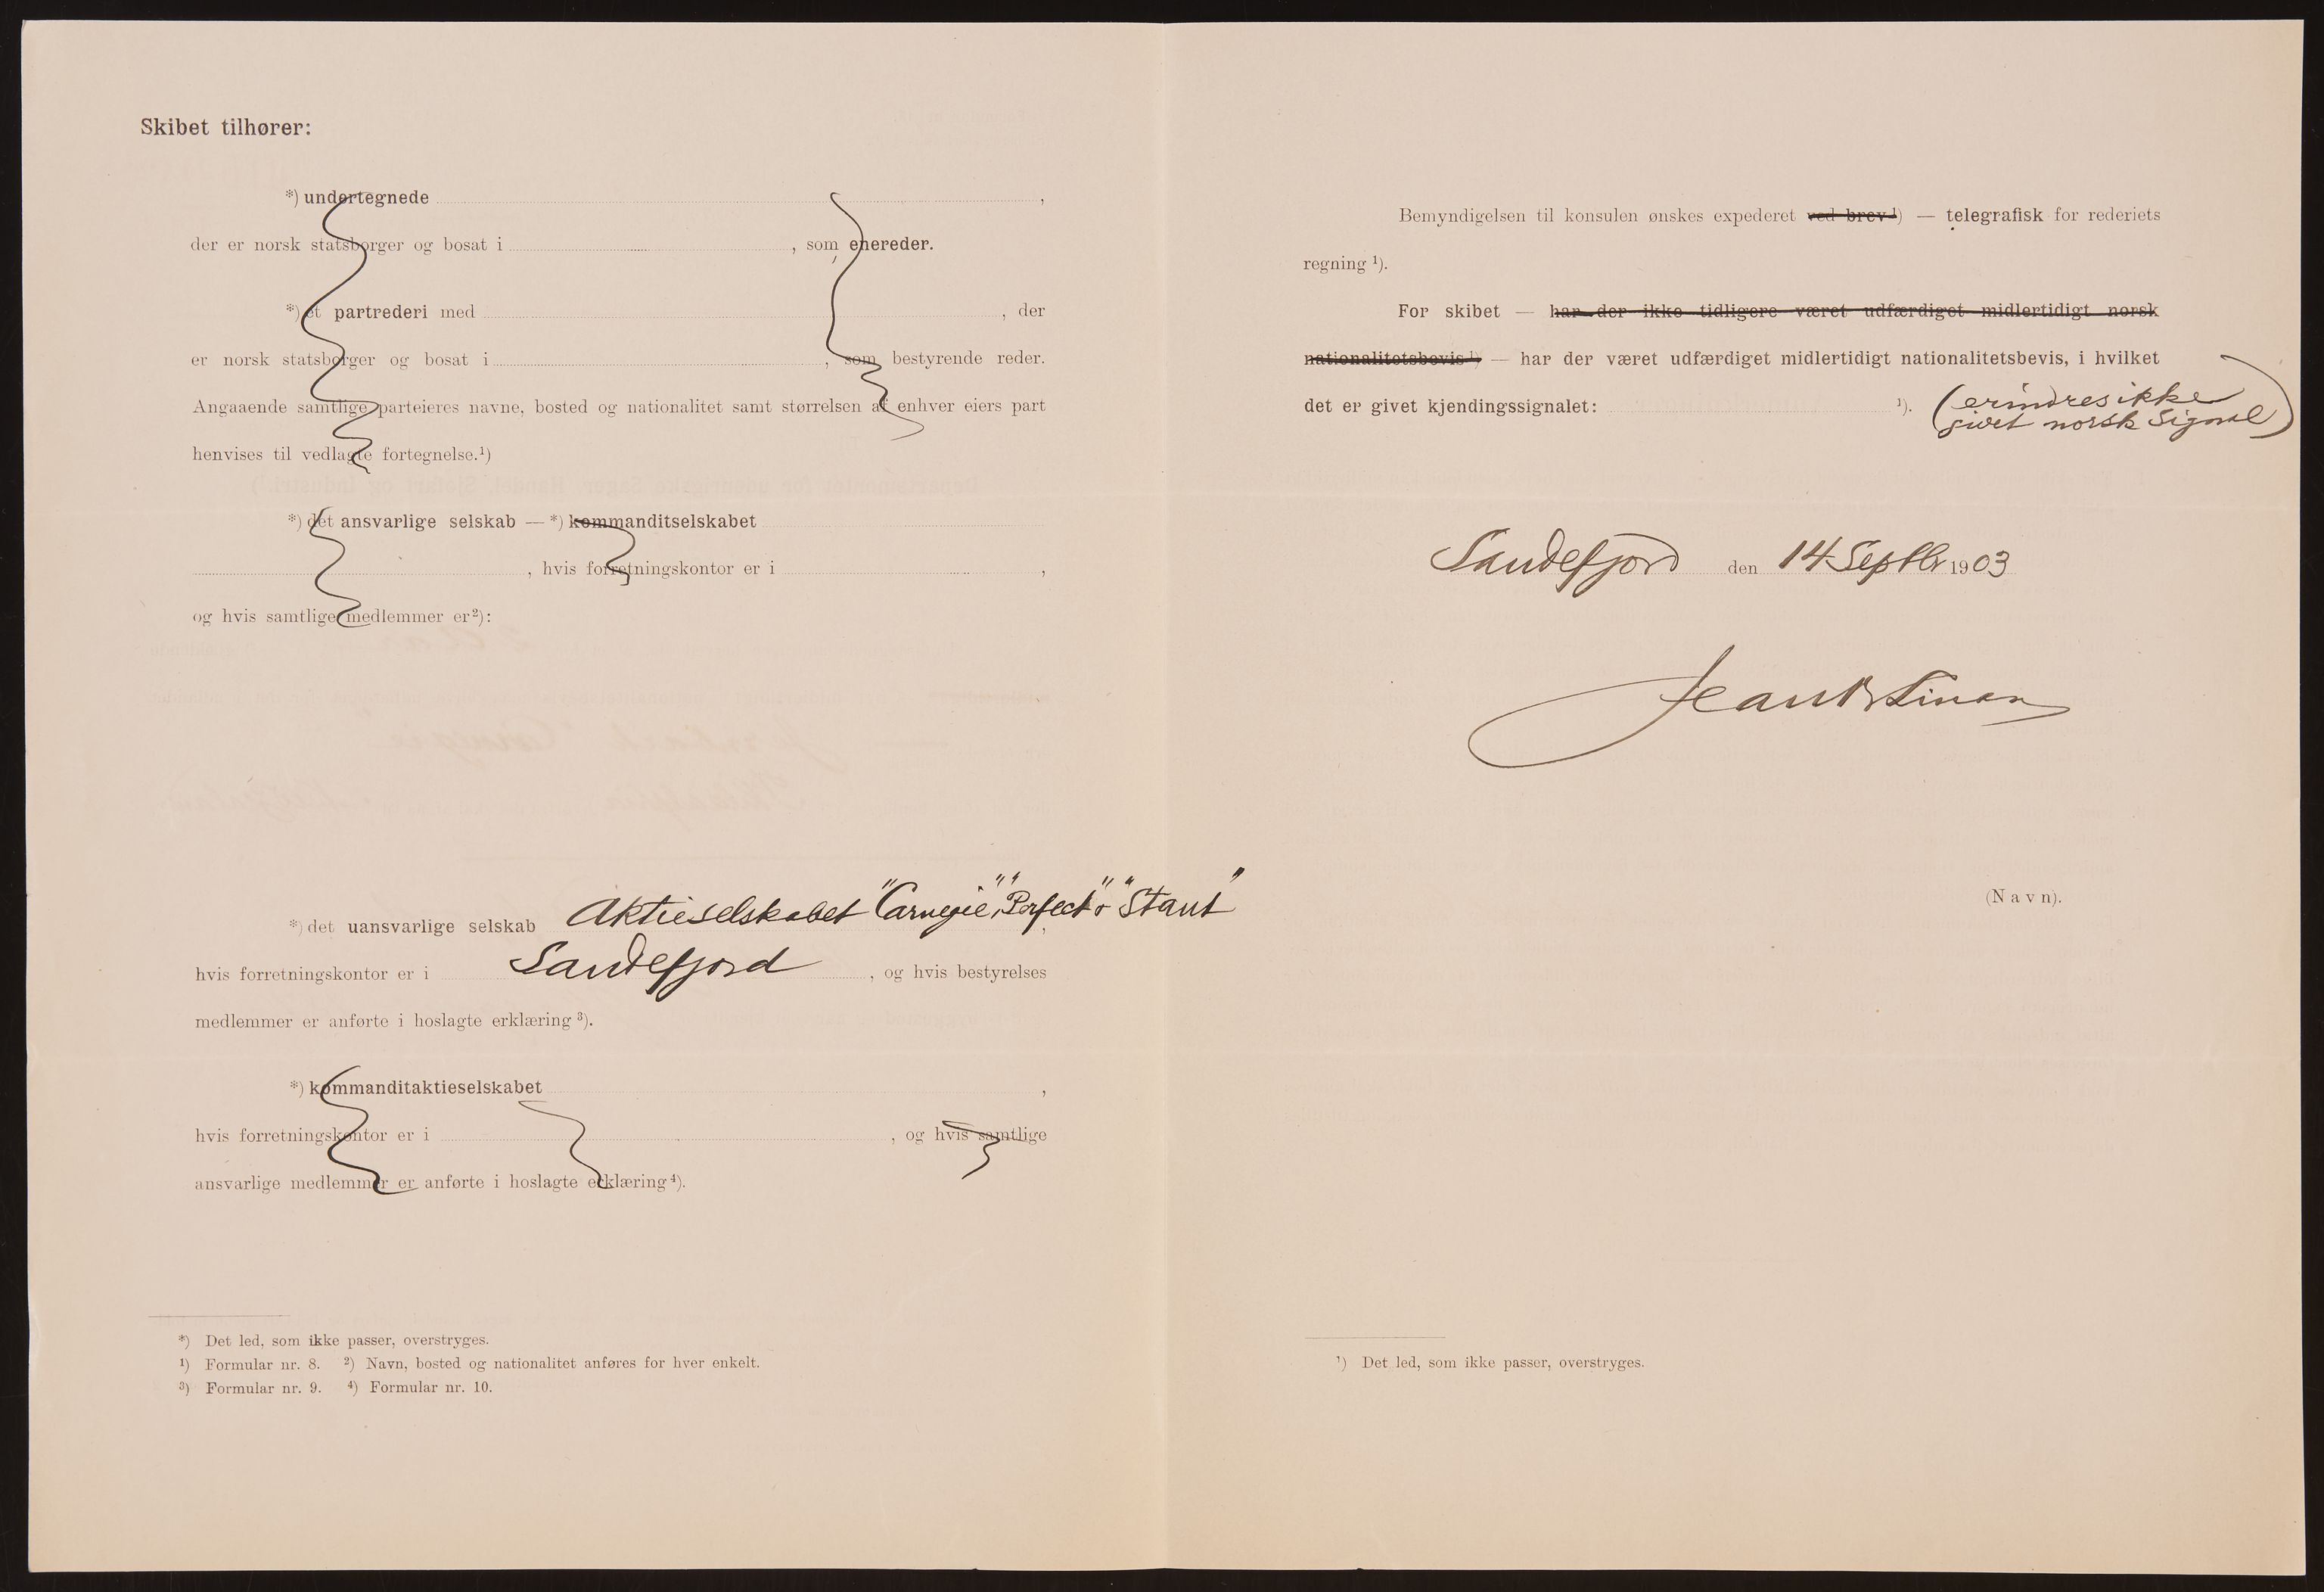 Skibet tilhører:
*) undertegnede ,
der er norsk statsborger og bosat i , som enereder.
*) et partrederi med , der
er norsk statsborger og bosat i , som bestyrende reder.
Angaaende samtlige parteieres navne, bosted og nationalitet samt størrelsen af enhver eiers part
henvises til vedlagte fortegnelse.¹)
*) det ansvarlige selskab — *) kommanditselskabet
, hvis forretningskontor er i ,
og hvis samtlige medlemmer er²):
*) det uansvarlige selskab Aktieselskabet "Carnegie", "Perfect" & "Staut"
hvis forretningskontor er i Sandefjord , og hvis bestyrelses
medlemmer er anførte i hoslagte erklæring ³).
*) kommanditaktieselskabet ,
hvis forretningskontor er i , og hvis samtlige
ansvarlige medlemmer er anførte i hoslagte erklæring ⁴).
*) Det led, som ikke passer, overstryges.
¹) Formular nr. 8. ²) Navn, bosted og nationalitet anføres for hver enkelt.
³) Formular nr. 9. ⁴) Formular nr. 10.
Bemyndigelsen til konsulen ønskes expederet ved brev ¹) — telegrafisk for rederiets
regning ¹).
For skibet — har der ikke tidligere været udfærdiget midlertidigt norsk
nationalitetsbevis ¹) — har der været udfærdiget midlertidigt nationalitetsbevis, i hvilket
det er givet kjendingssignalet: ¹). (erindres ikke
givet norsk Signal)
Sandefjord den 14 Septbr 1903
(Navn).
¹) Det led, som ikke passer, overstryges.